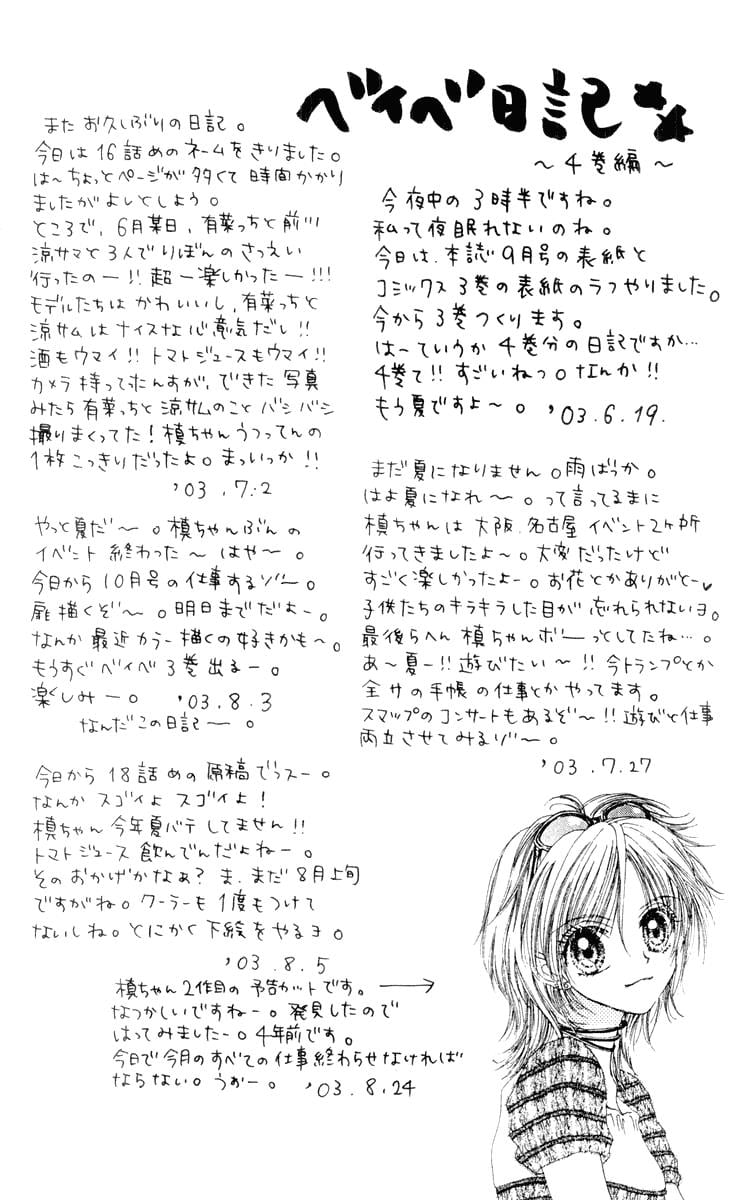 ベイベ日記
～4巻編～
今夜中の3時半ですね。
私って夜眠れないのね。
今日は、本誌9月号の表紙と
コミックス3巻の表紙のラフやりました。
今から3巻つくります。
は～ていうか4巻分の日記ですか…
4巻て!!すごいねっ。なんか!!
もう夏ですよ～。'03.6.19.
また お久しぶりの日記。
今日は16話めのネームをきりました。
は～ちょっとページが多くて時間かかり
ましたがよしとしよう。
ところで、6月某日、有菜っちと前川
涼サマと3人でりぼんのさつえい
行ったのー!!超ー楽しかったー!!!
モデルたちはかわいいし、有菜っちと
涼サムはナイスな心意気だし!!
酒もウマイ!!トマトジュースもウマイ!!
カメラ持ってたんすが、できた写真
みたら有菜っちと涼サムのことバシバシ
撮りまくってた!槙ちゃんうつってんの
1枚こっきりだったよ。まっいっか!!
'03.7.2
まだ夏になりません。雨ばっか。
はよ夏になれ～。って言ってるまに
槙ちゃんは大阪、名古屋イベント2ヶ所
行ってきましたよ～。大変だったけど
すごく楽しかったよー。お花とかありがとー♥
子供たちのキラキラした目が忘れられないヨ。
最後らへん槙ちゃんボーっとしてたね…。
あ～夏ー!!遊びたい～!!今トランプとか
全サの手帳の仕事とかやってます。
スマップのコンサートもあるぞ～!!遊びと仕事
両立させてみるゾ～。
'03.7.27
やっと夏だ～。槙ちゃんぶんの
イベント終わった～はや～。
今日から10月号の仕事するゾ～。
扉描くぞ～。明日までだよー。
なんか最近カラー描くの好きかも～。
もうすぐベイベ3巻出るー。
楽しみー。'03.8.3
なんだこの日記ー。
今日から18話めの原稿でっスー。
なんかスゴイよスゴイよ!
槙ちゃん今年夏バテしてません!!
トマトジュース飲んでんだよねー。
そのおかげかなぁ?ま、まだ8月上旬
ですがね。クーラーも1度もつけて
ないしね。とにかく下絵をやるヨ。
'03.8.5
槙ちゃん2作目の予告カットです。→
なつかしいですねー。発見したので
はってみましたー。4年前です。
今日で今月のすべての仕事終わらせなければ
ならない。うおー。'03.8.24